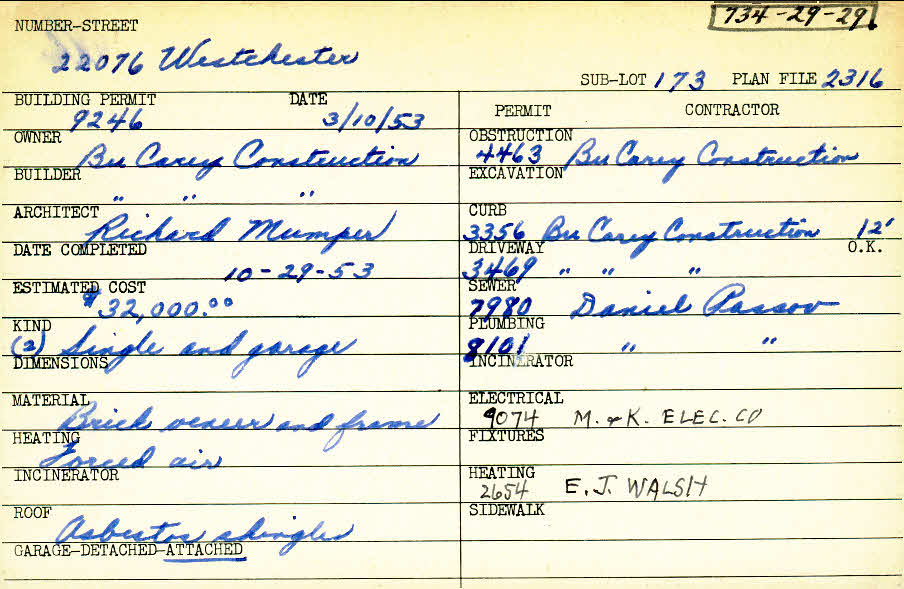 734-29-29
NUMBER-STREET
22076 Westchester
SUB-LOT 173 PLAN FILE 2316
BUILDING PERMIT DATE
9246 3/10/53
OWNER
Bu Carey Construction
BUILDER
" " "
ARCHITECT
Richard Mumper
DATE COMPLETED
10-29-53
ESTIMATED COST
$32,000.00
KIND
(2) Single and garage
DIMENSIONS
MATERIAL
Brick veneer and frame
HEATING
Forced air
INCINERATOR
ROOF
Asbestos shingles
GARAGE-DETACHED-ATTACHED
PERMIT CONTRACTOR
OBSTRUCTION
4463 Bu Carey Construction
EXCAVATION
CURB
3356 Bu Carey Construction 12'
DRIVEWAY O.K.
3469 " " "
SEWER
7980 Daniel Passov
PLUMBING
8101 " "
INCINERATOR
ELECTRICAL
9074 M. & K. ELEC. CO
FIXTURES
HEATING
2654 E. J. WALSH
SIDEWALK